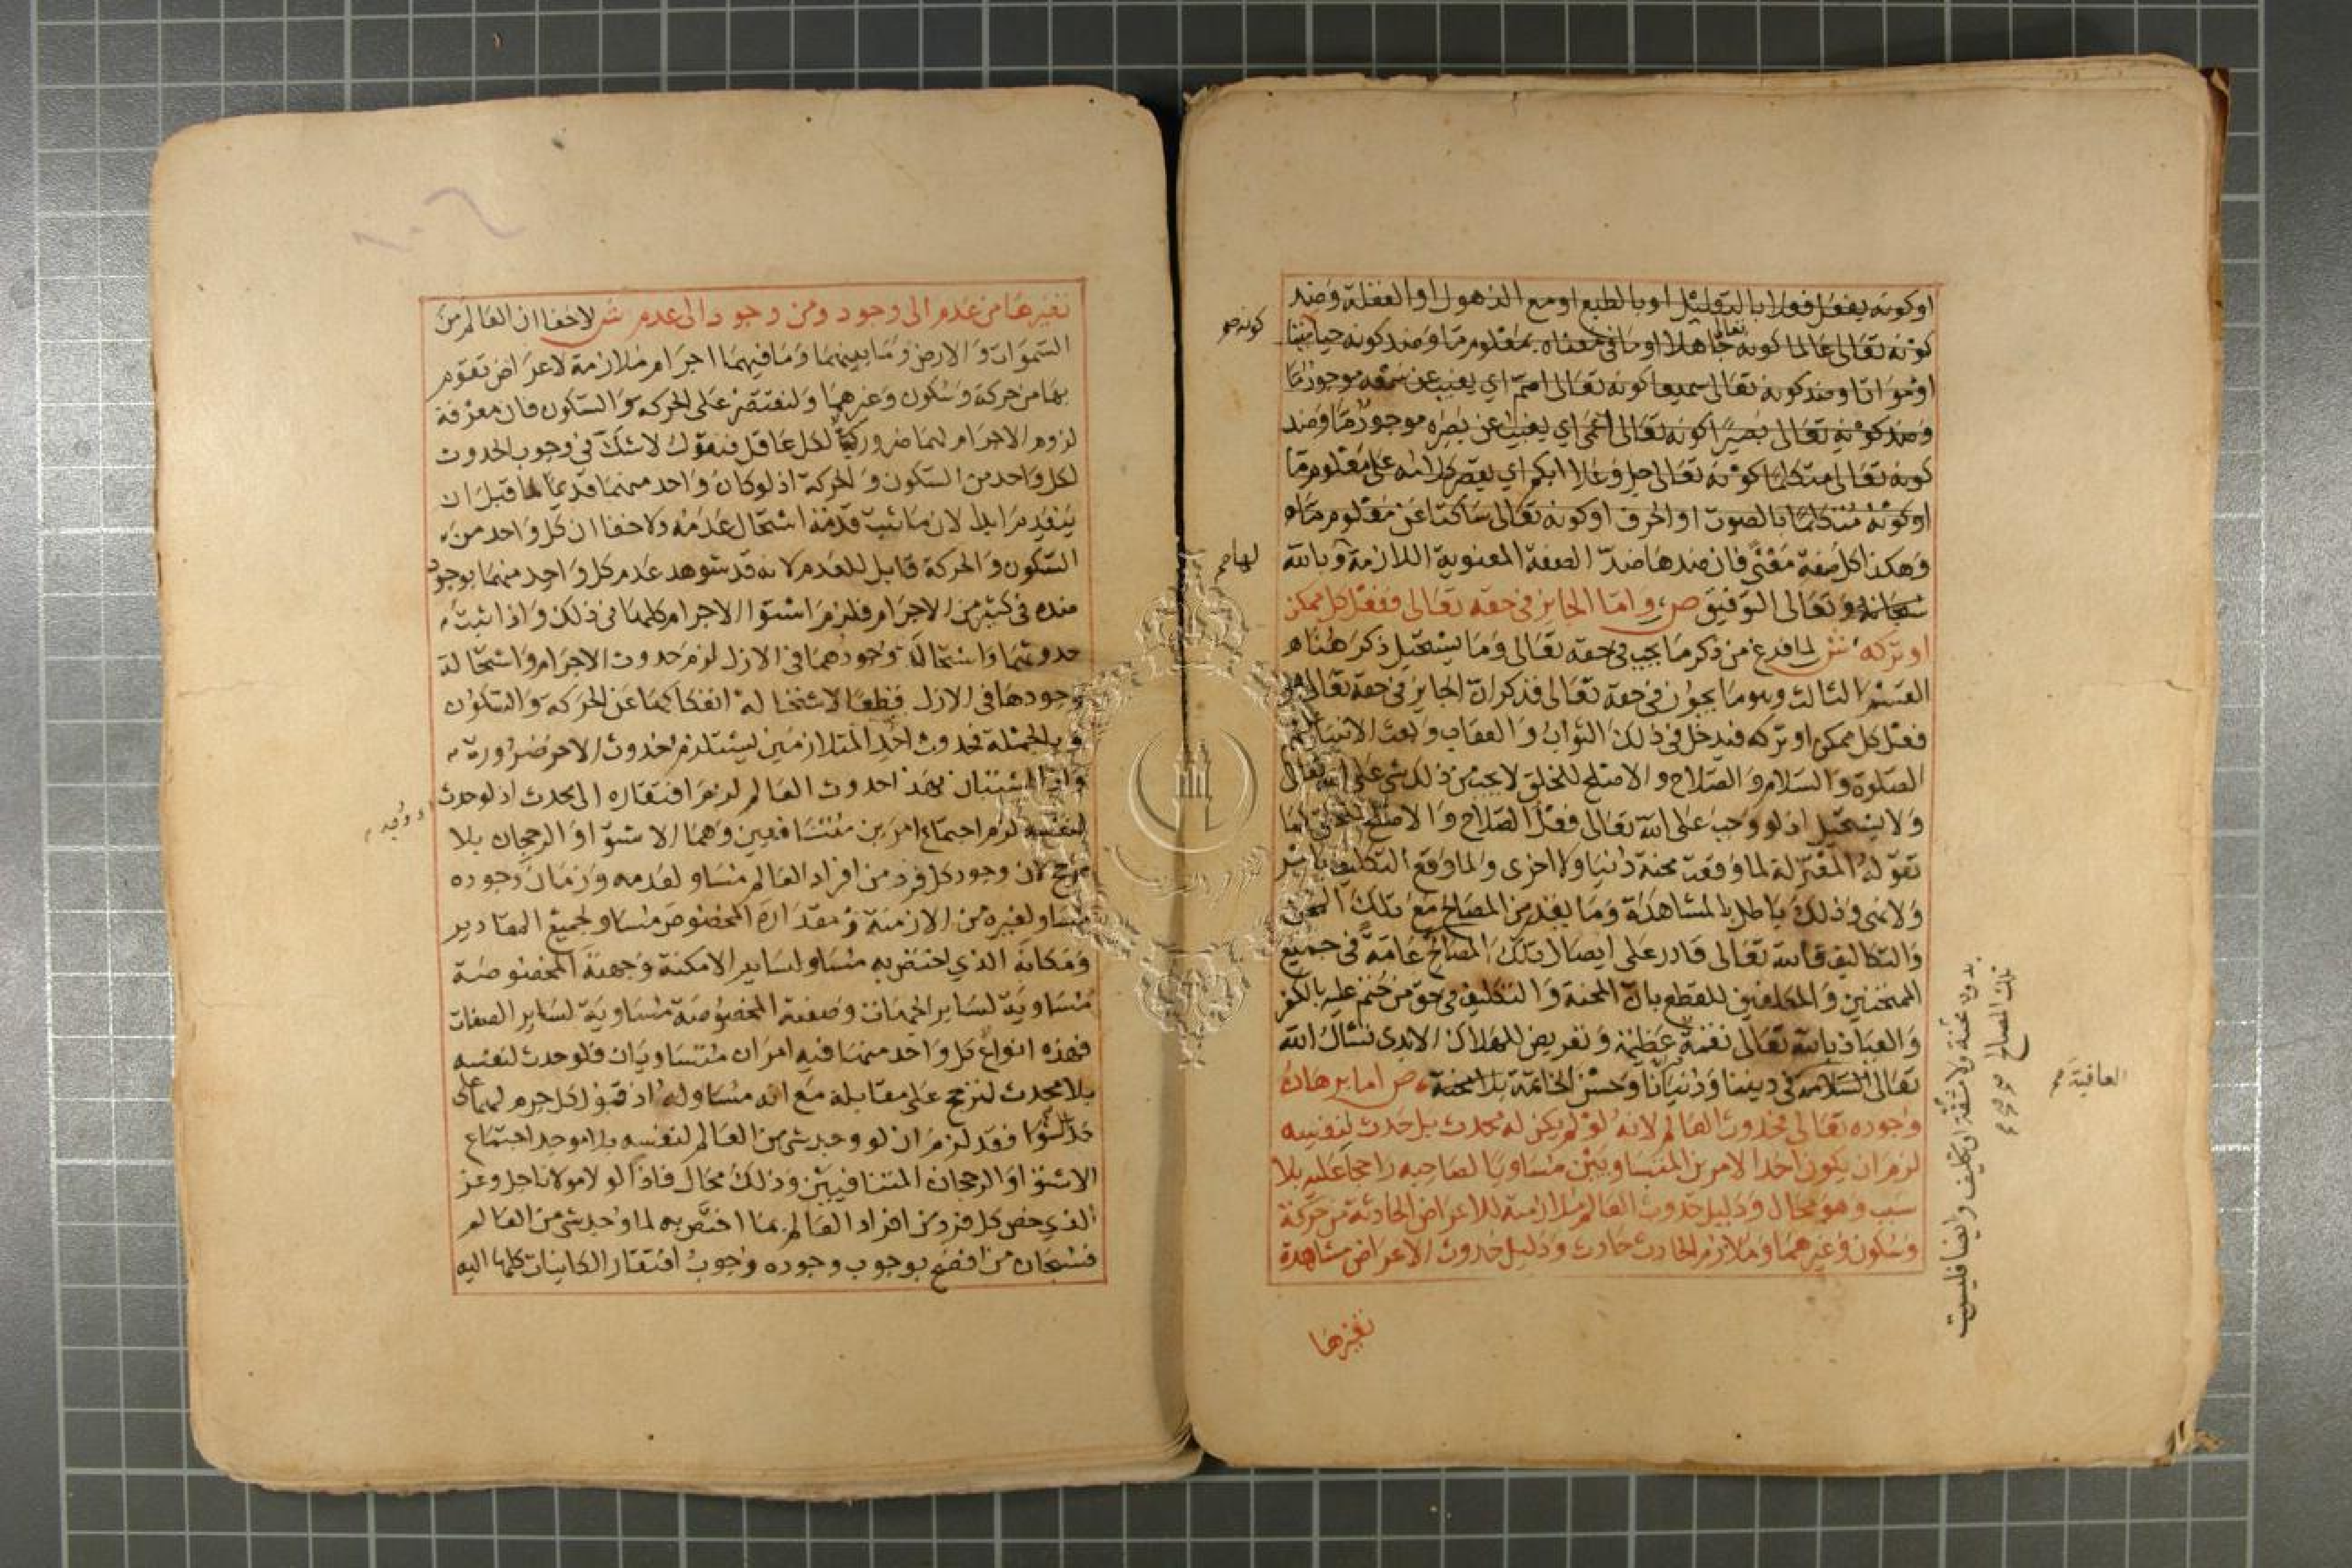 او كونه يفعل فعلا بالتعليل او بالطبع او مع الذهول او الغفلة وضد
كونه تعالى عالما كونه تعالى جاهلا او ما في معناه بمعلوم ما وضد كونه حيا ميتا
او مواتا وضد كونه تعالى سميعا كونه تعالى اصم اي يغيب عن سمعه موجود ما
وضد كونه تعالى بصيرا كونه تعالى اعمى اي يغيب عن بصره موجود ما وضد
كونه تعالى متكلما كونه تعالى جل وعلا ابكم اي يقصر كلامه على معلوم ما
او كونه متكلما بالصوت او الحرف او كونه تعالى ساكتا عن معلوم ما
وهكذا كل صفة معنى فان ضدها ضد الصفة المعنوية اللازمة وبالله
سبحانه وتعالى التوفيق ص واما الجايز في حقه تعالى ففعل كل ممكن
او تركه ش لما فرغ من ذكر ما يجب في حقه تعالى وما يستحيل ذكر هنا
القسم الثالث وهو ما يجوز في حقه تعالى فذكر ان الجايز في حقه تعالى
فعل كل ممكن او تركه فيدخل في ذلك الثواب والعقاب وبعث الانبيا
الصلوة والسلام والصلاح والاصلح للخلق لا يجب من ذلك شي على الله تعالى
ولا يستحيل اذ لو وجب على الله تعالى فعل الصلاح والاصلح للخلق كما
تقوله المعتزلة لما وقعت محنة دنيا ولا اخرى ولما وقع التكليف بامر
ولا نهي وذلك باطل بالمشاهدة وما يقدر من المصالح مع تلك المحن
والتكاليف فالله تعالى قادر على ايصال تلك المصالح عامة في جميع
الممتحنين والمكلفين للقطع بان المحنة والتكليف في حق من ختم عليه بالكفر
والعياذ بالله تعالى نقمة عظيمة وتعريض للهلاك الابدي نسال الله
تعالى السلامة في ديننا ودنيانا وحسن الخاتمة بلا محنة ص اما برهان
وجوده تعالى فحدوث العالم لانه لو لم يكن له محدث بل حدث لنفسه
لزم ان يكون احد الامرين المتساويين مساويا لصاحبه راجحا عليه بلا
سبب وهو محال ودليل حدوث العالم ملازمته للاعراض الحادثة من حركة
وسكون وغيرهما وملازم الحادث حادث ودليل حدوث الاعراض مشاهدة
تغيرها
كونه صح
لها صح
بدون محنة ولا مشقة او تكليف وايضا فليست
تلك المصالح
العافية صح
تغيرها من عدم الى وجود ومن وجود الى عدم ش لا خفا ان العالم من
السموات والارض وما بينهما وما فيهما اجرام ملازمة لاعراض تقوم
بها من حركة وسكون وغيرهما ولنقتصر على الحركة والسكون فان معرفة
لزوم الاجرام لهما ضرورية لكل عاقل فنقول لا شك في وجوب الحدوث
لكل واحد من السكون والحركة اذ لو كان واحد منهما قديما لما قبل ان
ينعدم ابدا لان ما ثبت قدمه استحال عدمه ولا خفا ان كل واحد من
السكون والحركة قابل للعدم لانه قد شوهد عدم كل واحد منهما بوجود
ضده في كثير من الاجرام فلزم استوا الاجرام كلها في ذلك واذا ثبت
حدوثهما واستحالة وجودهما في الازل لزم حدوث الاجرام واستحالة
وجودها في الازل قطعا لاستحالة انفكاكها عن الحركة والسكون
وبالجملة فحدوث احد المتلازمين يستلزم حدوث الاخر ضرورة
واذا استبان بهذا حدوث العالم لزم افتقاره الى محدث اذ لو حدث
لنفسه لزم اجتماع امرين متنافيين وهما الاستوا والرجحان بلا
مرجح لان وجود كل فرد من افراد العالم مساو لعدمه وزمان وجوده
مساو لغيره من الازمنة ومقداره المخصوص مساو لجميع المقادير
ومكانه الذي اختص به مساو لساير الامكنة وجهته المخصوصة
مساوية لساير الجهات وصفته المخصوصة مساوية لساير الصفات
فهذه انواع كل واحد منها فيه امران متساويان فلو حدث لنفسه
بلا محدث لترجح على مقابله مع انه مساو له اذ قبول كل جرم لهما على
حد السوا فقد لزم ان لو وجد شي من العالم لنفسه بلا موجد اجتماع
الاستوا والرجحان المتنافيين وذلك محال فاذا لولا مولانا جل وعز
الذي خص كل فرد من افراد العالم بما اختص به لما وجد شي من العالم
فسبحان من افصح بوجوب وجوده وجوب افتقار الكاينات كلها اليه